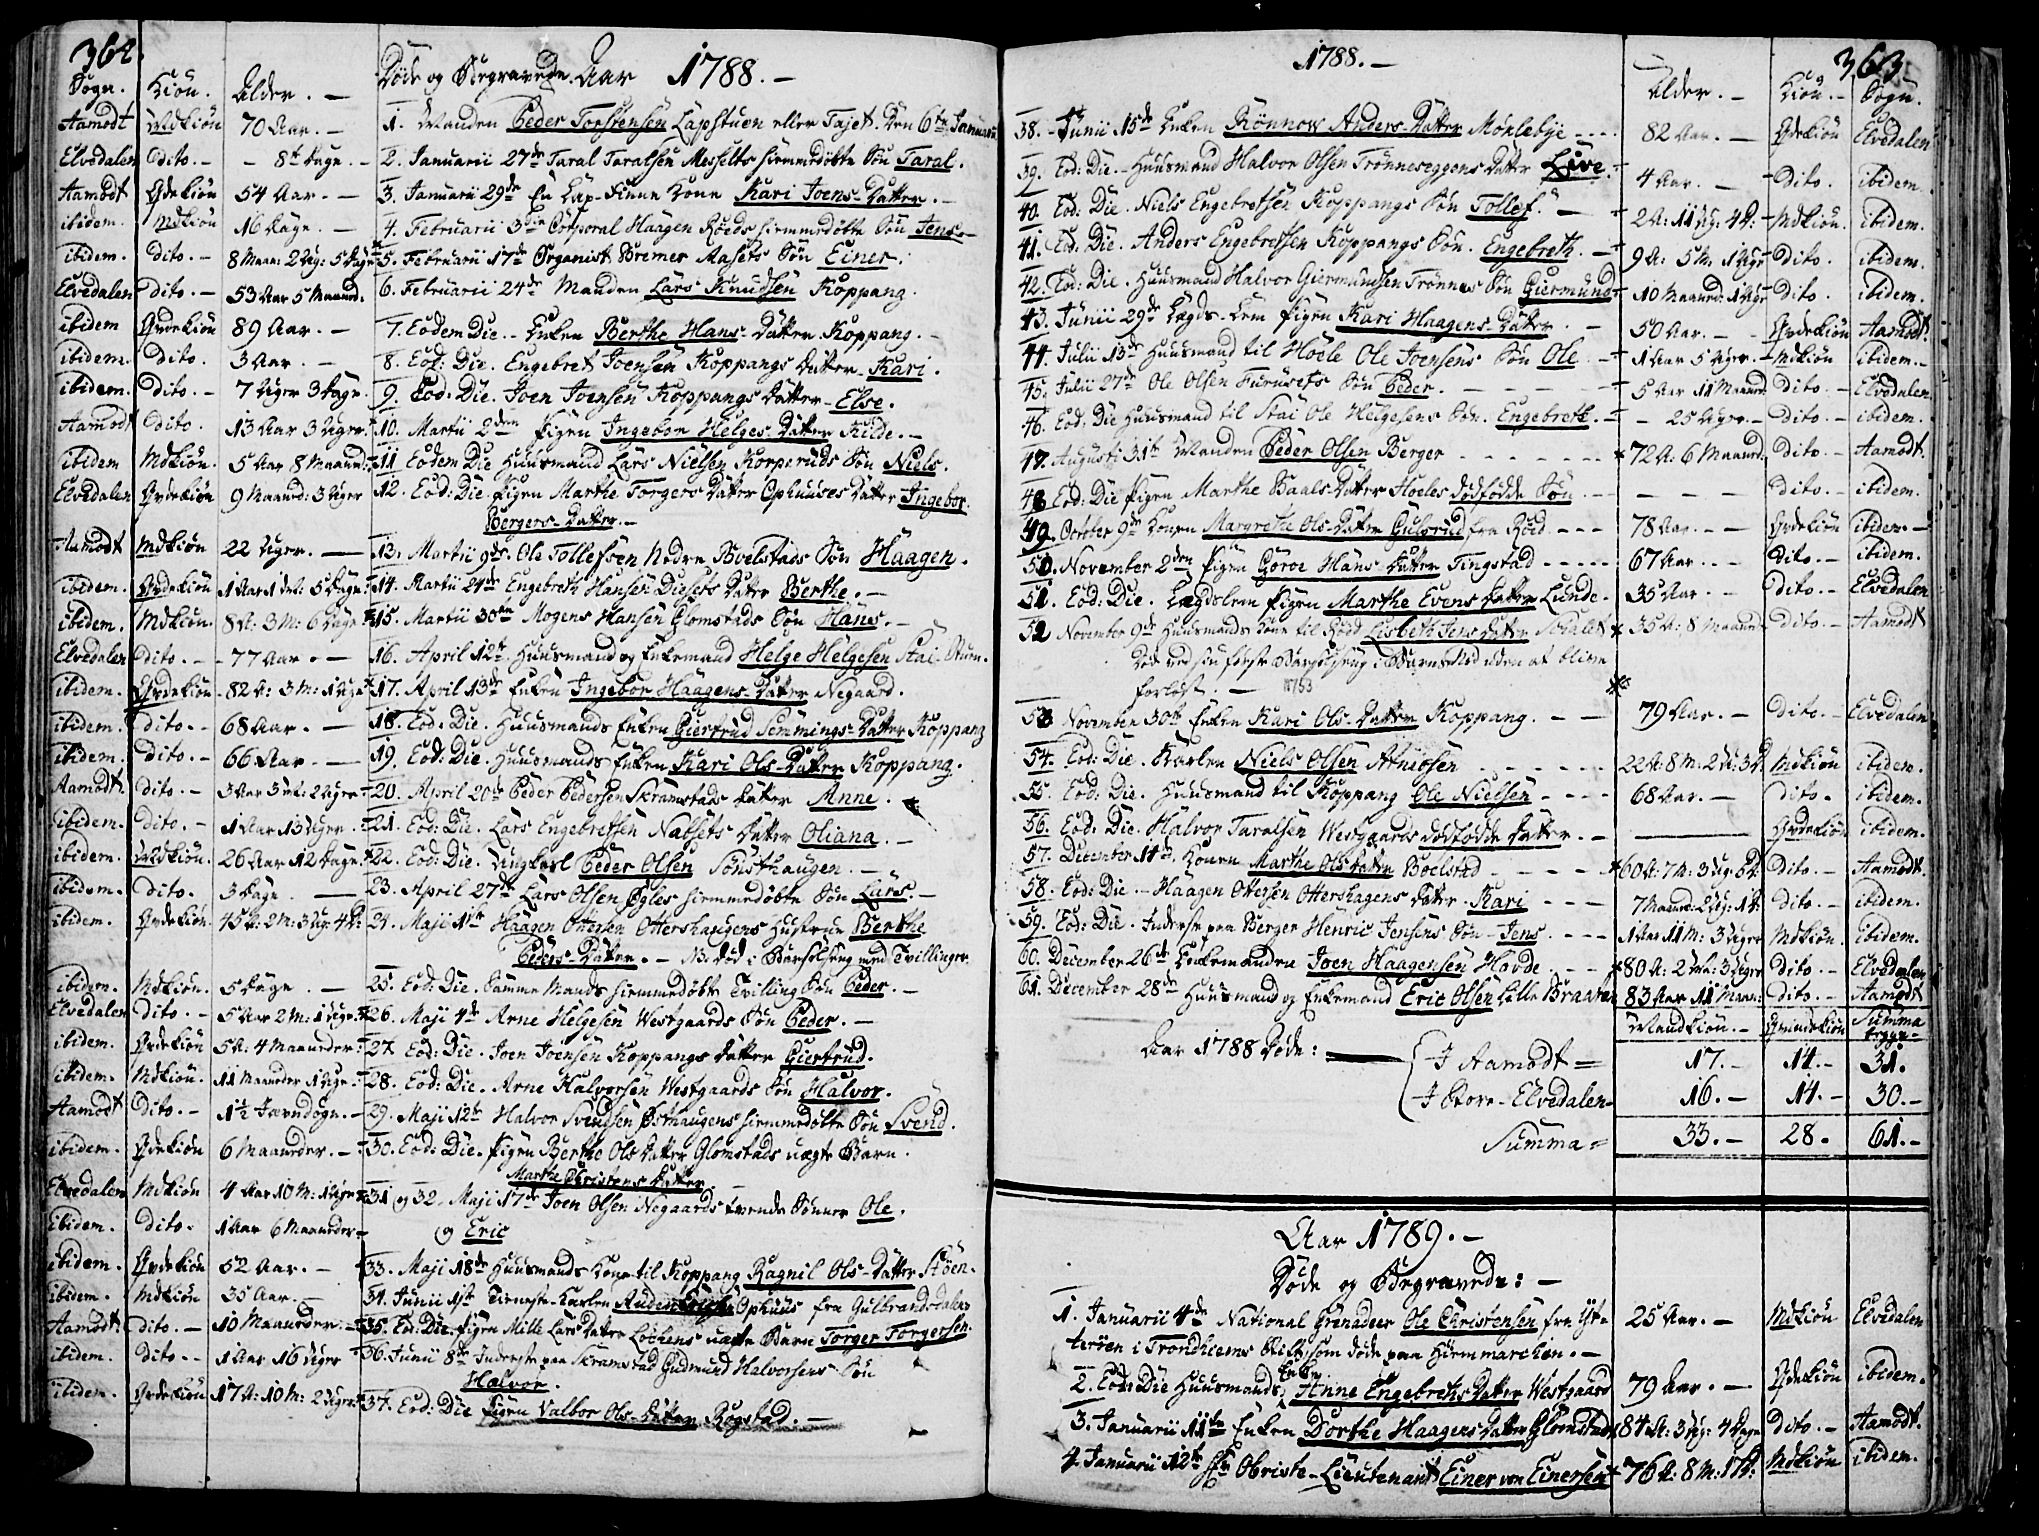 362.
Sogn. Kiön. Alder. — Döde og Begravede. Aar 1788. —
Aamodt Mdkiön 70 Aar. — 1. Manden Peder Torstensen Lapstuen eller Tajet. Den 6te Januarii
Elvedalen Dito. — 8te Dage. — 2. Januarii 27de Taral Taralsen Messelts hiemmedöbte Sön Taral.
Aamodt Qvdekiön 54 Aar. — 3. Januarii 29de En Lap-Finne Kone Kari Joens-Datter. —
ibidem. Mdkiön 16 Dage. — 4. Februarii 3die Corporal Haagen Röeds hiemmedöbte Sön Jens. —
ibidem. Dito. — 8 Maan: 2 Ug: 5 Dage 5. Februarii 17de Organist Bremer Aasets Sön Einer.
Elvedalen Dito. — 53 Aar 5 Maaned. 6. Februarii 24de Manden Lars Knudsen Koppang.
ibidem Qvdekiön 89 Aar. — 7. Eodem Die. Enken Berthe Hans-Datter Koppang. —
ibidem. Dito. 3 Aar. — 8. Eod: Die. Engebret Joensen Koppangs Datter Kari.
ibidem. Dito. — 7 Uger 3 Dage. 9. Eod: Die. Joen Joensen Koppangs Datter Else.
Aamodt Dito. 13 Aar 3 Uger. 10. Martii 2den Pigen Ingebor Helges Datter Kilde. —
ibidem Mdkiön. 5 Aar 8 Maaned: 11 Eodem Die Huusmand Lars Nielsen Korperuds Sön Niels.
Elvedalen Qvdekiön 9 Maaned: 3 Uger 12. Eod: Die. Pigen Marthe Torgers Datter Ophuuses Datter Ingebor
Bergers-Datter. —
Aamodt Mdkiön 22 Uger. — 13. Martii 9de. Ole Tollefsen Nedre Boelstads Sön Haagen.
ibidem. Qvdekiön 1 Aar 1 Md: 5 Dage. 14. Martii 24de Engebreth Hansen Diesets Datter Berthe. —
ibidem. Mdkiön. 8 A: 3 M: 6 Dage 15. Martii 30te Mogens Hansen Glomstads Sön Hans. —
Elvedalen Dito. — 77 Aar. — 16. April 12te Huusmand og Enkemand Helge Helgesen Stai-Stuen.
ibidem. Qvdekiön 82 A: 3 M: 1 Uge 17. April 13de Enken Ingebor Haagens-Datter Negaard.
ibidem. Dito. — 68 Aar. — 18. Eod: Die. Huusmands Enken Giertrud Semmings-Datter Koppang
ibidem. Dito. — 66 Aar. — 19. Eod: Die. Huusmands Enken Kari Ols-Datter Koppang.
Aamodt. Dito. — 3 Aar 3 M: 2 Uger 20. April 20de Peder Pedersen Skramstads Datter Anne.
ibidem. Dito. — 1 Aar 13 Uger. 21. Eod: Die. Lars Engebretsen Nabsets Datter Oliana. —
ibidem. Mdkiön. 26 Aar 12 Dage. 22. Eod: Die. Ungkarl Peder Olsen Sönsthaugen. —
ibidem. Dito. 3 Dage. — 23. April 27de Lars Olsen Ögles hiemmedöbte Sön Lars. —
ibidem. Qvdekiön. 45 A: 2 M: 3 Ug: 4 D: 24. Maji 1ste Haagen Ottersen Ottershaugens Hustrue Berthe
Peders-Datter. — NB. död i Barselseng med Tvillinger
ibidem. Mdkiön. 5 Dage. — 25. Eod: Die. Samme Mands hiemmedöbte Tvilling Sön Peder. —
Elvedalen Dito. — 5 Aar 2 M: 1 Uge. 26. Maji 4de Arne Helgesen Westgaards Sön Peder. —
ibidem. Qvdekiön 5 A: 4 Maaneder: 27. Eod: Die. Joen Joensen Koppangs Datter Giertrud.
ibidem. Mdkiön. 11 Maaneder 1 Uge. 28. Eod: Die. Arne Halvorsen Westgaards Sön Halvor.
Aamodt Dito. — 1½ Jevndögn. — 29. Maji 12te Halvor Svendsen Östhaugens hiemmedöbte Sön Svend.
ibidem. Qvdekiön 6 Maaneder. — 30. Eod: Die. Pigen Berthe Ols Datter Glomstads uægte Barn.
Marthe Christens Datter
Elvedalen Mdkiön 4 Aar 10 M: 1 Uge 31 og 32. Maji 17de Joen Olsen Negaards tvende Sönner Ole.
ibidem. Dito. 1 Aar 6 Maaneder — og Eric
ibidem. Qvdekiön 52 Aar. — 33. Maji 18de Huusmands Kone til Koppang Ragnil Ols-Datter Stöen.
ibidem. Mdkiön 35 Aar. — 34. Junii 1ste Tieneste-Karlen Auden Ophuus fra Gulbrandsdalen
Aamodt. Dito. — 10 Maaneder. — 35. Eo: Die. Pigen Mille Lars Datter Löckens uægte Barn Torger Torgersen
ibidem. Dito. — 1 Aar 16 Uger 36. Junii 8de Inderste paa Skramstad Gudmund Halvorsens Sön
Halvor.
ibidem. Qvdekiön 17 A: 10 M: 2 Uger 37. Eod: Die Pigen Valbor Ols-Datter Rogstad. —
1788. — 363.
Alder. — Kiön. — Sogn.
38. Junii 15de Enken Rönnow Anders-Datter Möklebye 82 Aar. — Qvdekiön Elvedalen
39. Eod: Die. Huusmand Halvor Olsen Trönneseggens Datter Live. 4 Aar. — Dito. ibidem.
40. Eod: Die. Niels Engebretsen Koppangs Sön Tollef. — 2 A: 11 Ug: 4 D: Mdkiön. ibidem.
41. Eod: Die. Anders Engebretsen Koppangs Sön. Engebreth. — 9 A: 5 M: 1 Uge Dito. ibidem.
42. Eod: Die. Huusmand Halvor Giermundsen Trönnes Sön Giermund 10 Maaned: 1 Uge Dito. ibidem.
43. Junii 29de Lægds-Lem Pigen Kari Haagens-Datter. — 50 Aar. — Qvdekiön Aamodt.
44. Julii 13de Huusmand til Hoele Ole Joensens Sön Ole. 1 Aar 5 Uger. — Mdkiön ibidem.
45. Julii 27de Ole Olsen Furusets Sön Peder. — 5 Aar 11 Maaned Dito. — Elvedalen
46. Eod: Die Huusmand til Stai Ole Helgesens Sön. Engebreth — 25 Uger. — Dito. — ibidem.
47. Augusti 31te Manden Peder Olsen Berger 72 A: 6 Maaned. Dito. — Aamodt.
48 Eod: Die Pigen Marthe Baals-Datter Hoeles dödfödde Sön. — Dito. — ibidem.
49. October 9de Konen Margrethe Ols-Datter Gulsrud fra Röed 78 Aar. — Qvdekiön ibidem. —
50. November 2den Pigen Goroe Hans Datter Tingstad 67 Aar. — Dito. — ibidem.
51. Eod: Die. Lægdslem Pigen Marthe Evens Datter Lunde. 35 Aar. — Dito. — Elvedalen
52 November 9de Huusmands Kone til Röed Lisbeth Jens Datter 35 A: 8 Maaned Dito. — Aamodt
död ved sin förste Barselseng i Barns Nöd uden at blive
forlöst. —
53 November 30te Enken Kari Ols-Datter Koppang. — 79 Aar. — Dito. — Elvedalen
54. Eod: Die. Karlen Niels Olsen Atneosen 22 A: 8 M: 2 U: 3 D. Mdkiön ibidem.
55. Eod: Die. Huusmand til Koppang Ole Nielsen 68 Aar. — Dito. ibidem.
56. Eod: Die. Halvor Taralsen Westgaards dödfödde Datter. — Qvdekiön ibidem.
57. December 14de Konen Marthe Ols Datter Boelstad 60 A: 7 M: 3 Ug: 6 D. Dito. — Aamodt.
58. Eod: Die. — Haagen Ottersen Ottershagens Datter Kari 7 Maaned: 2 Ug: 1 D: Dito. — ibidem.
59. Eod: Die. Inderste paa Berger Henric Jensens Sön Jens. 1 Aar 11 M: 3 Uger Mdkiön. ibidem.
60. December 26de Enkemanden Joen Haagensen Hovde 80 A: 2 M: 3 Uger Dito. — Elvedalen
61. December 28de Huusmand og Enkemand Eric Olsen Lille Braaten 83 Aar 11 Maan: Dito. — Aamodt
Mandkiön. — Qvindekiön Summa
Aar 1788 Döde: I Aamodt = 17. — 14. — 31.
I Store-Elvedalen 16. — 14. — 30. —
Summa = 33. — 28. 61. —
Aar 1789. —
Döde og Begravede: —
1. Januarii 4de National Grenadeer Ole Christensen fra Yt- 25 Aar. — Mdkiön Elvedalen
teröen i Trondhiems Stift, som döde paa Hiemmarchen. —
2. Eod: Die Huusmands Enke Anne Engebreths Datter Westgaard 79 Aar. — Qvdekiön ibidem.
3. Januarii 11te Enken Dorthe Haagens Datter Glomstad 84 A: 3 Ug: 4 Dage Dito. — Aamodt.
4. Januarii 12te Hr Obriste-Lieutenant Einer von Einersen 76 A: 8 M: 1 D: Mdkiön ibidem.